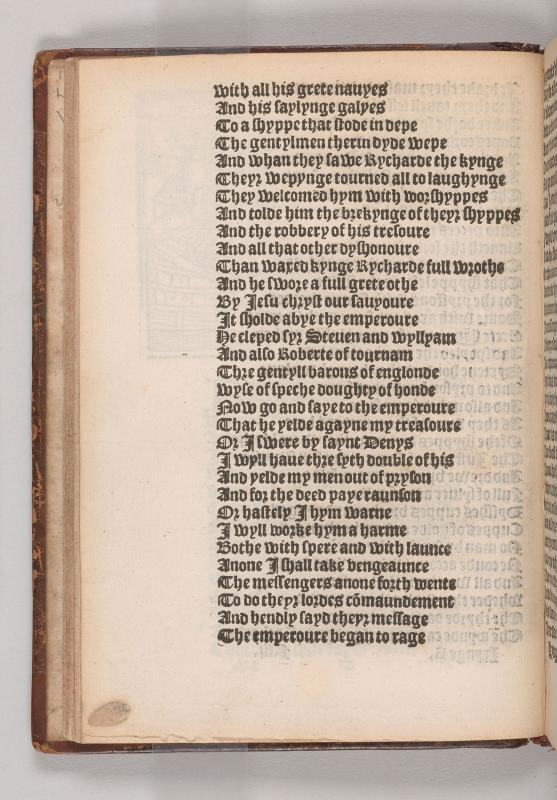 with all his grete nauyes
And his saylynge galyes
To a shyppe that stode in depe
The gentylmen therin dyde wepe
And whan they sawe Rycharde the kynge
Theyr wepynge tourned all to laughynge
They welcomed hym with worshyppes
And tolde him the brekynge of theyr shyppes
And the robbery of his tresoure
And all that other dyshonoure
Than waxed kynge Rycharde full wrothe
And he swore a full grete othe
By Jesu chryst our sauyoure
It sholde abye the emperoure
He cleped syr Steuen and wyllyam
And also Roberte of tournam
Thre gentyll barons of englonde
wyse of speche doughty of honde
Now go and saye to the emperoure
That he yelde agayne my treasoure
Or I swere by saynt Denys
I wyll haue thre syth double of his
And yelde my men out of pryson
And for the deed paye raunson
Or hastely I hym warne
I wyll worke hym a harme
Bothe with spere and with launce
Anone I shall take vengeaunce
The messengers anone forth wente
To do theyr lordes cõmaundement
And hendly sayd theyr message
The emperoure began to rage